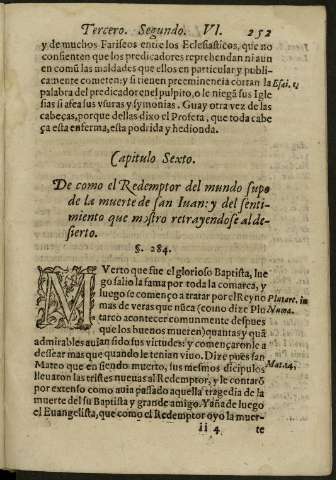 Tercero. Segundo. VI. 252
y de muchos Fariseos entre los Eclesiasticos, que no
consienten que los predicadores reprehendan ni aun
en comũ las maldades que ellos en particular y publi-
camente cometen: y si tienen preeminencia cortan la
palabra del predicador en el pulpito, o le niegã sus Igle
sias si afea sus vsuras y symonias. Guay otra vez de las
cabeças, porque dellas dixo el Profeta, que toda cabe
ça esta enferma, esta podrida y hedionda.
Esai. 1,
Capitulo Sexto.
De como el Redemptor del mundo supo
de la muerte de san Iuan: y del senti-
miento que mostro retrayendose al de-
sierto.
§. 284.
MVerto que fue el glorioso Baptista, lue
go salio la fama por toda la comarca, y
luego se començo a tratar por el Reyno
mas de veras que nũca (como dize Plu
tarco acontecer comunmente despues
que los buenos mueren) quantas y quã
admirables auian sido sus virtudes: y començaronle a
dessear mas que quando le tenian viuo. Dize pues san
Mateo que en siendo muerto, sus mesmos dicipulos
lleuaron las tristes nueuas al Redemptor, y le contarõ
por extenso como auia passado aquella tragedia de la
muerte del su Baptista y grande amigo. Y aña de luego
el Euangelista, que como el Redemptor oyo la muer-
Plutarc. in
Numa.
Mat. 14,
ii 4 te